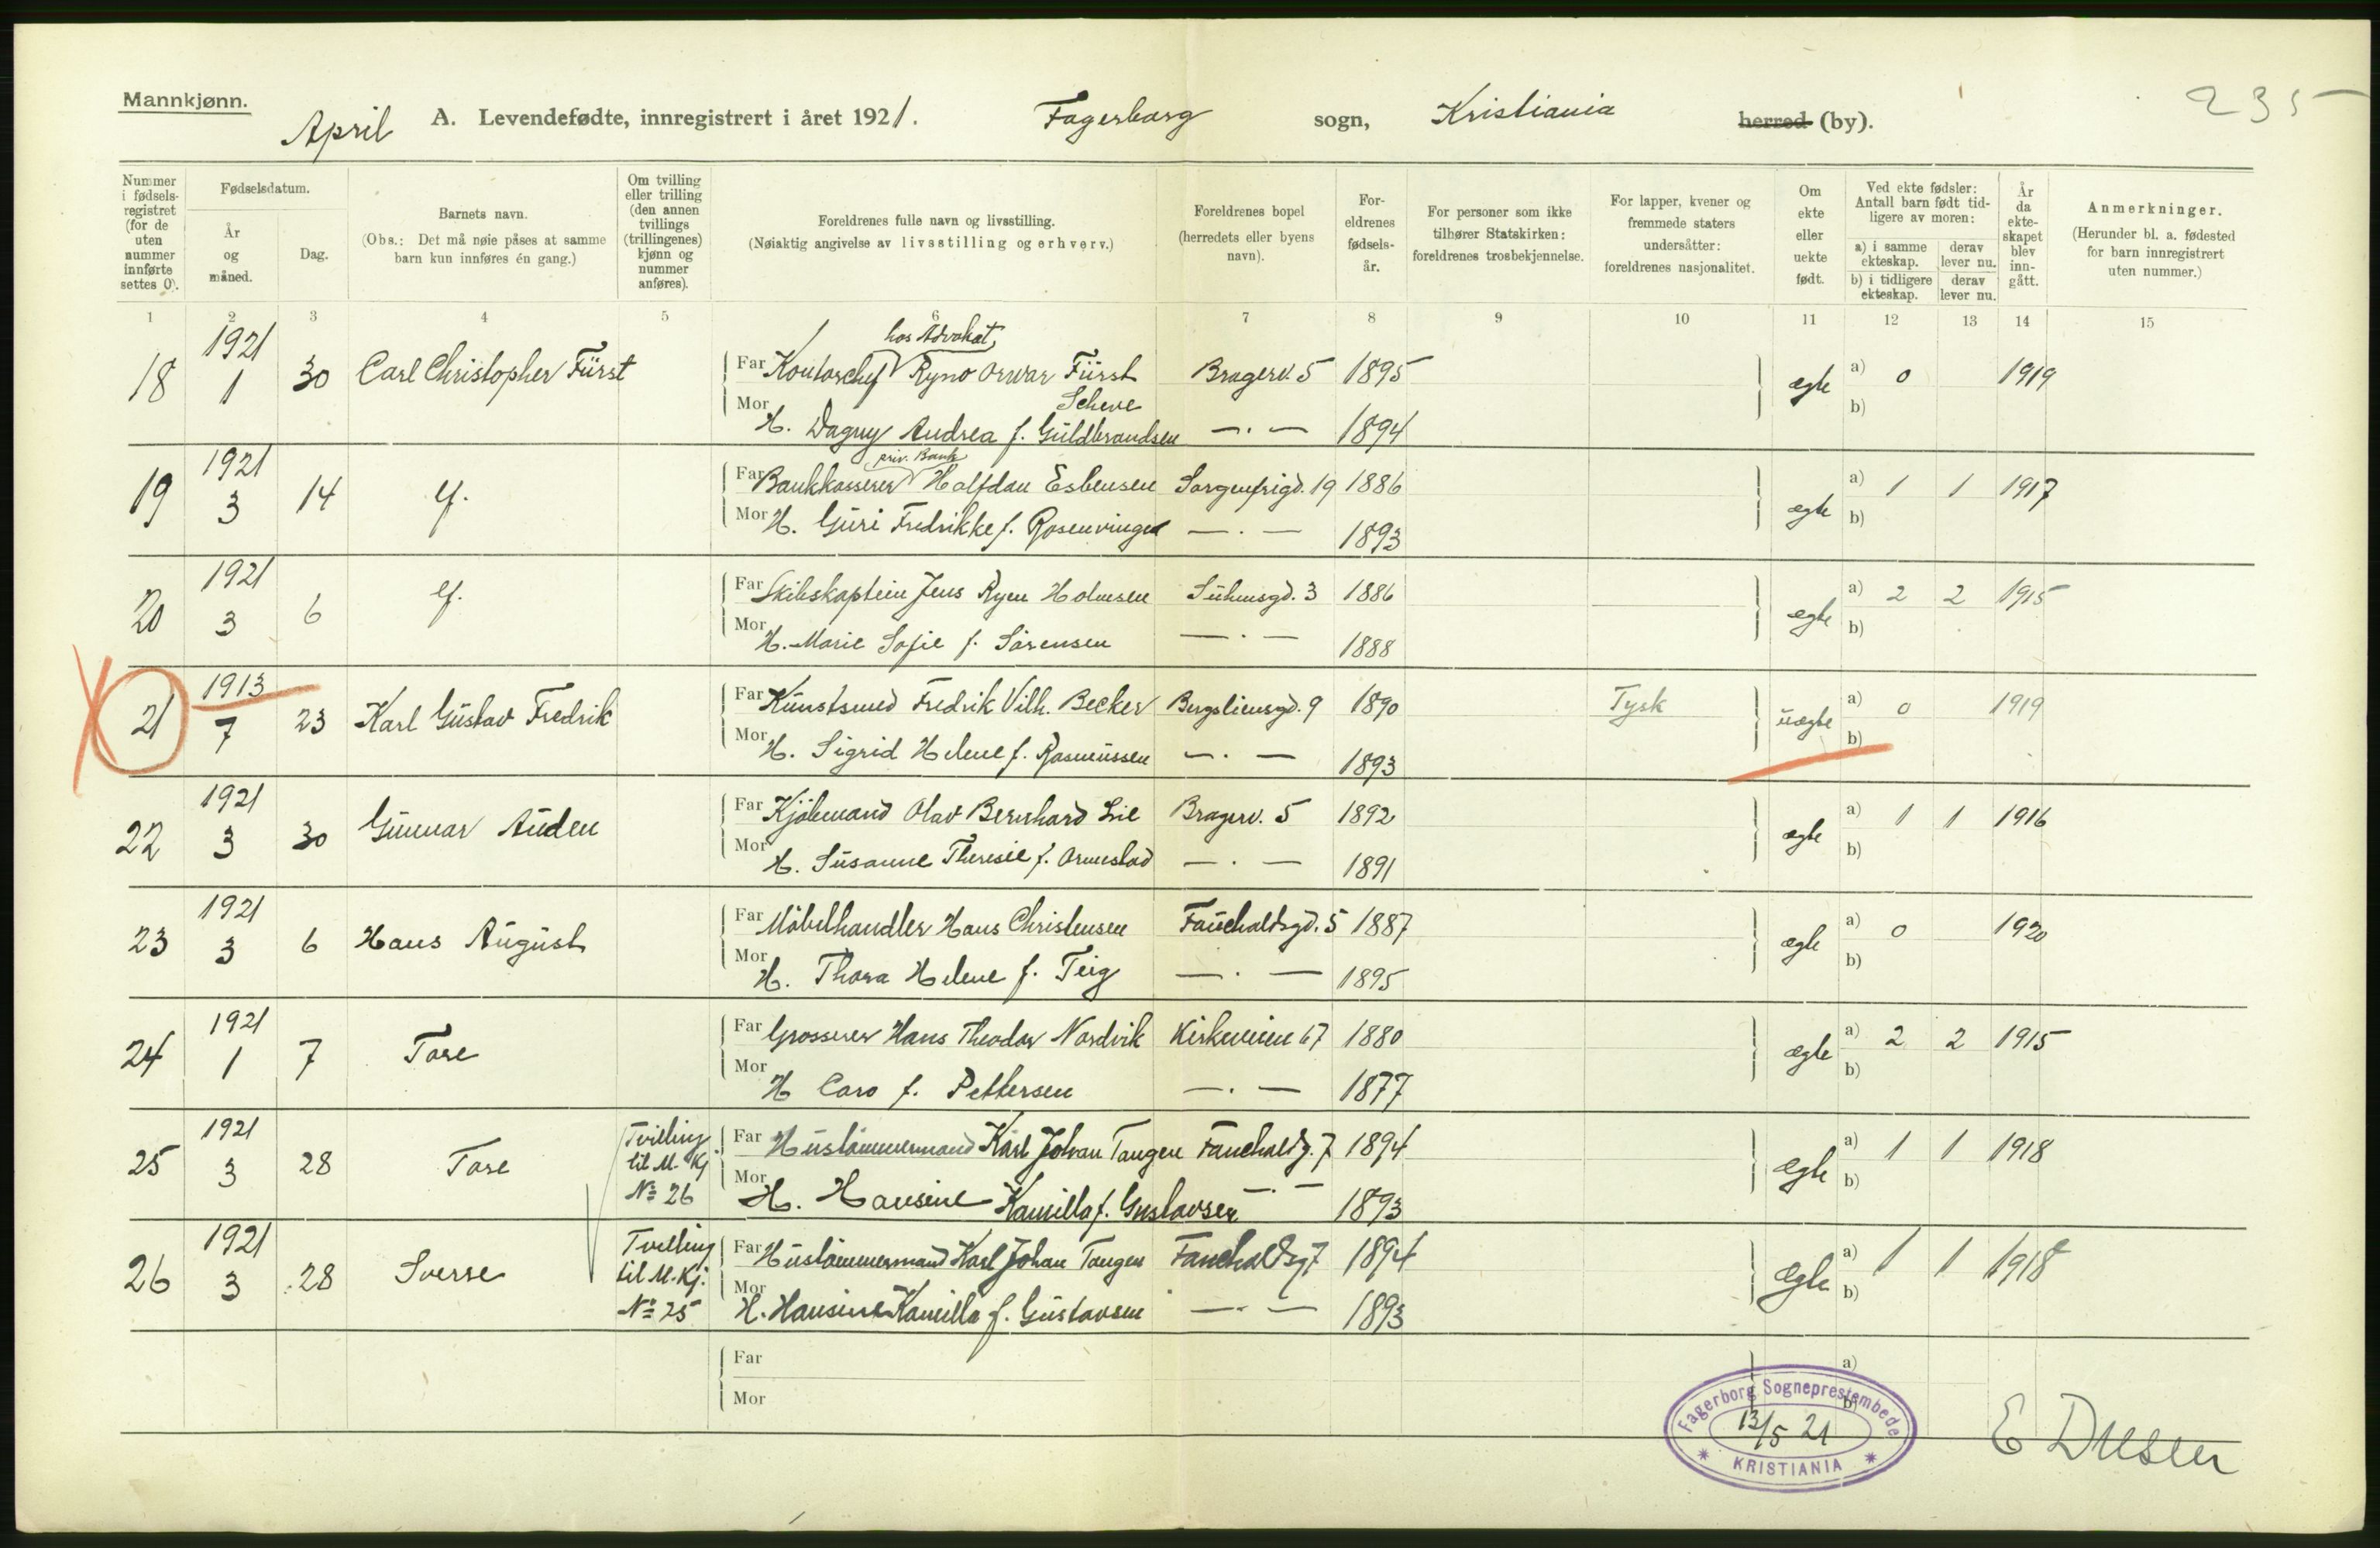 Mannkjønn.
235
April A. Levendefødte, innregistrert i året 1921. Fagerborg sogn, Kristiania herred (by).
Nummer i fødselsregistret (for de uten nummer innførte settes 0).
Fødselsdatum.
År og måned.
Dag.
Barnets navn.
(Obs.: Det må nøie påses at samme barn kun innføres én gang.)
Om tvilling eller trilling (den annen tvillings (trillingenes) kjønn og nummer anføres).
Foreldrenes fulle navn og livsstilling.
(Nøiaktig angivelse av livsstilling og erhverv.)
Foreldrenes bopel (herredets eller byens navn).
Foreldrenes fødselsår.
For personer som ikke tilhører Statskirken: foreldrenes trosbekjennelse.
For lapper, kvener og fremmede staters undersåtter: foreldrenes nasjonalitet.
Om ekte eller uekte født.
Ved ekte fødsler: Antall barn født tidligere av moren:
a) i samme ekteskap. derav lever nu.
b) i tidligere ekteskap. derav lever nu.
År da ekteskapet blev inngått.
Anmerkninger.
(Herunder bl. a. fødested for barn innregistrert uten nummer.)
1 2 3 4 5 6 7 8 9 10 11 12 13 14 15
hos Advokat
18 1921 1 30 Carl Christopher Fürst Far Kontorchef Ryno Orvar Fürst Bragerv. 5 1895 ægte a) 0 1919
Scheve
Mor H. Dagny Andrea f. Guldbrandsen — . — 1894 b)
priv. Bank
19 1921 3 14 Far Bankkasserer Halfdan Esbensen Sorgenfrigd. 19 1886 ægte a) 1 1 1917
Mor H. Guri Fredrikke f. Rosenvinge — . — 1893 b)
20 1921 3 6 Far Skibskaptein Jens Ryen Holmsen Suhmsgd. 3 1886 ægte a) 2 2 1915
Mor H. Marie Sofie f. Sørensen — . — 1888 b)
21 1913 7 23 Karl Gustav Fredrik Far Kunstsmed Fredrik Vilh. Becker Bergsliensgd. 9 1890 Tysk uægte a) 0 1919
Mor H. Sigrid Helene f. Rasmussen — . — 1893 b)
22 1921 3 30 Gunnar Auden Far Kjøbmand Olav Bernhard Lie Bragerv. 5 1892 ægte a) 1 1 1916
Mor H. Susanne Theresie f. Ormestad — . — 1891 b)
23 1921 3 6 Hans August Far Møbelhandler Hans Christensen Fauchaldsgd. 5 1887 ægte a) 0 1920
Mor H. Thora Helene f. Teig — . — 1895 b)
24 1921 1 7 Tore Far Grosserer Hans Theodor Nordvik Kirkeveien 67 1880 ægte a) 2 2 1915
Mor H Caro f. Pettersen — . — 1877 b)
25 1921 3 28 Tore Tvilling til M. Kj. No 26 Far Hustømmermand Karl Johan Tangen Fauchaldg. 7 1894 ægte a) 1 1 1918
Mor H. Hansine Kamilla f. Gustavsen — . — 1893 b)
26 1921 3 28 Sverre Tvilling til M. Kj. No 25 Far Hustømmermand Karl Johan Tangen Fauchaldsg 7 1894 ægte a) 1 1 1918
Mor H. Hansine Kamilla f. Gustavsen — . — 1893 b)
Far a)
Mor b)
Fagerborg Sogneprestembede
13/5 21
KRISTIANIA